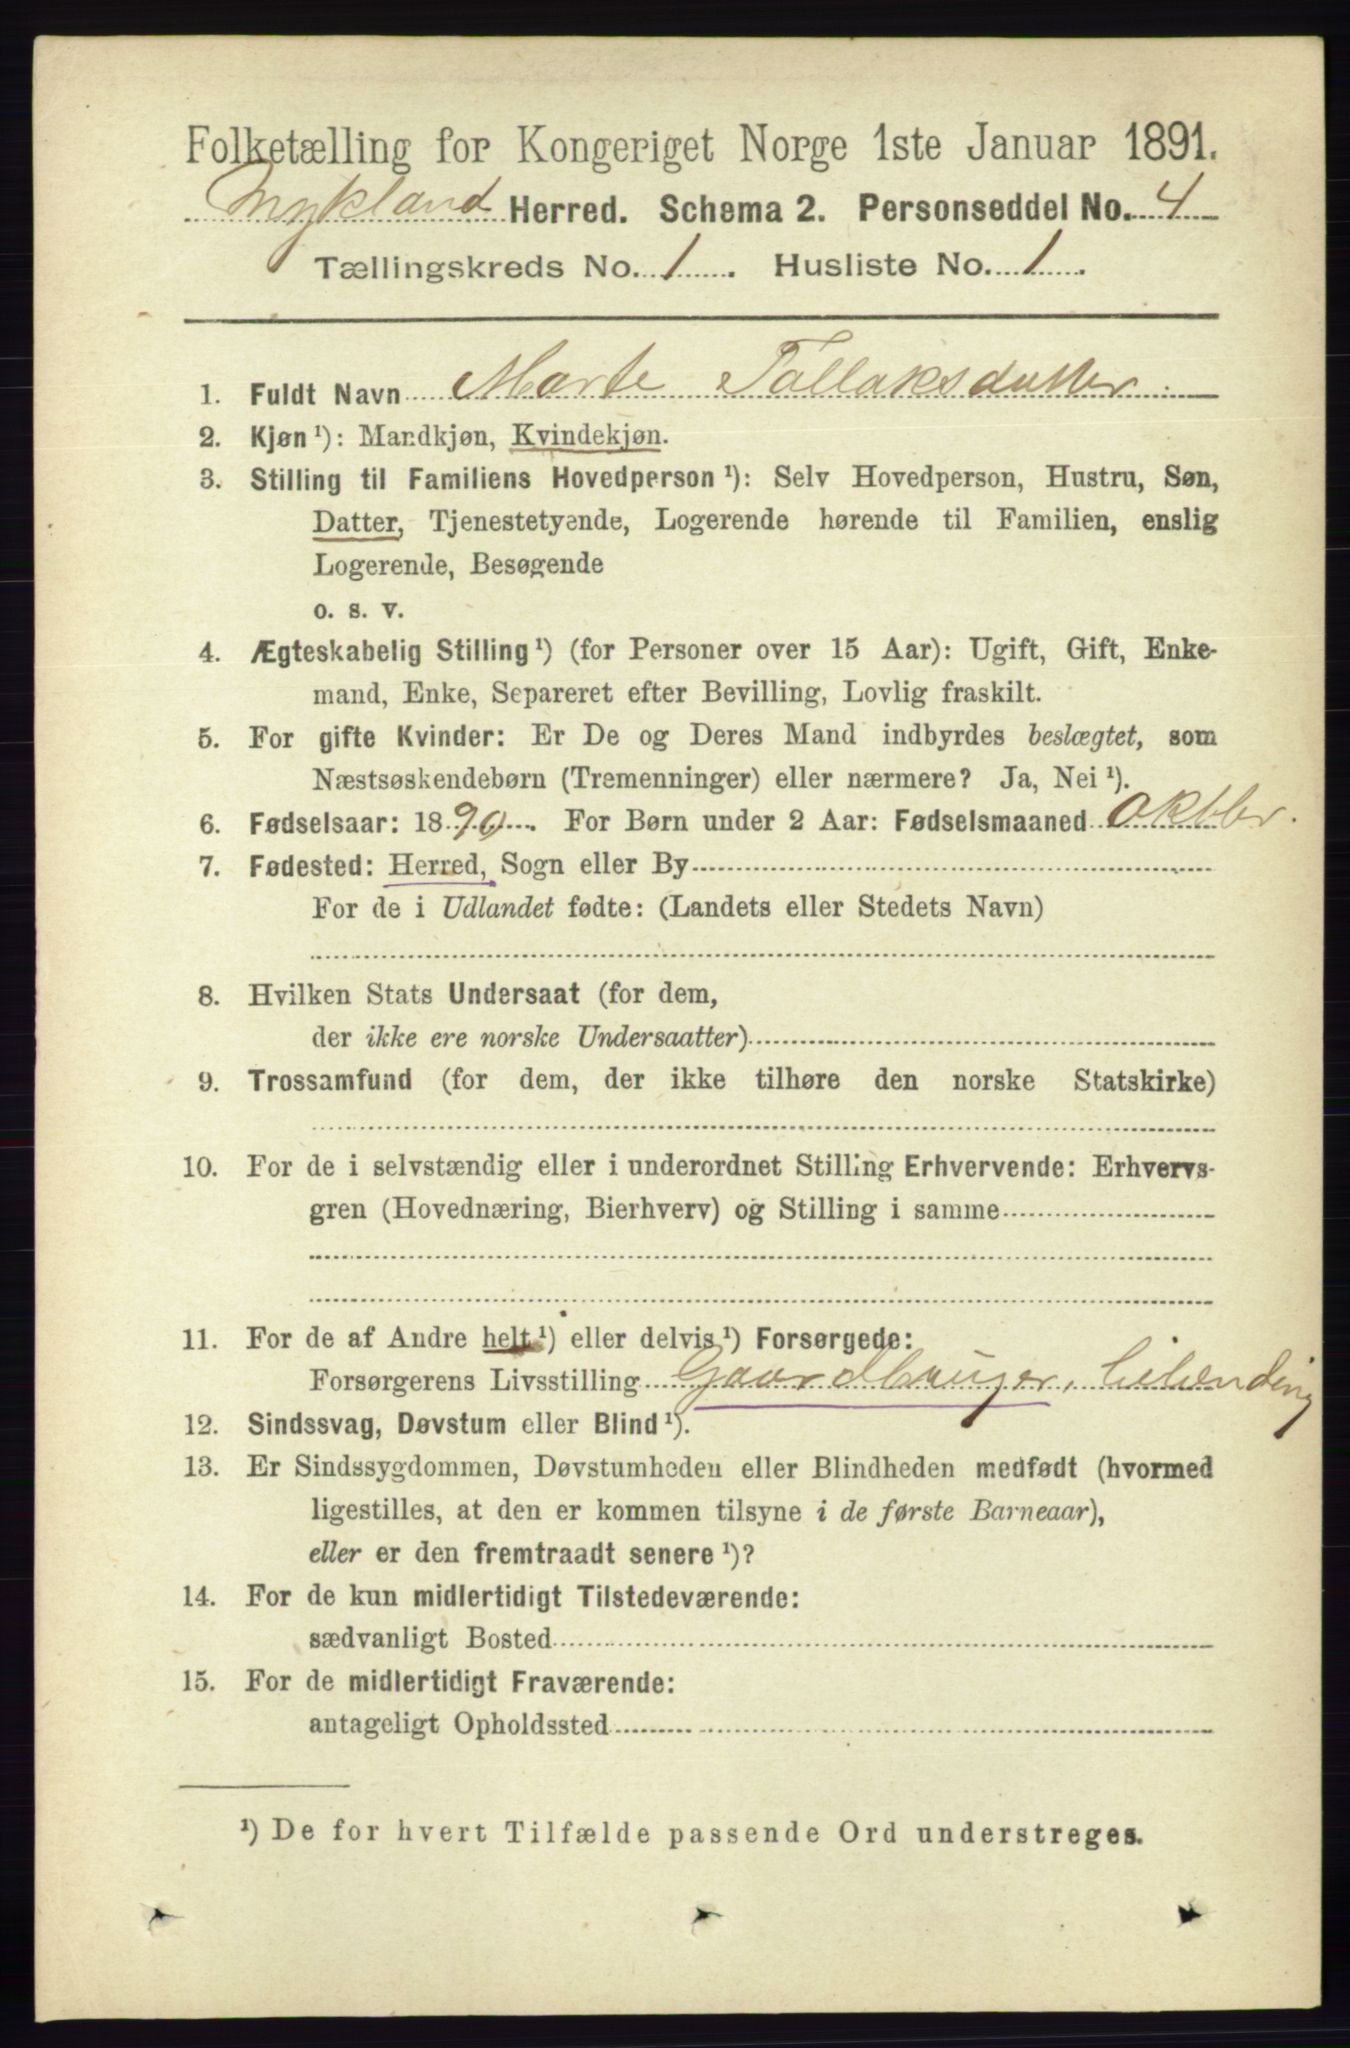 Folketælling for Kongeriget Norge 1ste Januar 1891.
Mykland Herred. Schema 2. Personseddel No. 4
Tællingskreds No. 1. Husliste No. 1.
1. Fuldt Navn Marte Tallaksdatter.
2. Kjøn¹): Mandkjøn, Kvindekjøn.
3. Stilling til Familiens Hovedperson¹): Selv Hovedperson, Hustru, Søn,
Datter, Tjenestetyende, Logerende hørende til Familien, enslig
Logerende, Besøgende
o. s. v.
4. Ægteskabelig Stilling¹) (for Personer over 15 Aar): Ugift, Gift, Enke-
mand, Enke, Separeret efter Bevilling, Lovlig fraskilt.
5. For gifte Kvinder: Er De og Deres Mand indbyrdes beslægtet, som
Næstsøskendebørn (Tremenninger) eller nærmere? Ja, Nei¹).
6. Fødselsaar: 1890. For Børn under 2 Aar: Fødselsmaaned Oktbr.
7. Fødested: Herred, Sogn eller By
For de i Udlandet fødte: (Landets eller Stedets Navn)
8. Hvilken Stats Undersaat (for dem,
der ikke ere norske Undersaatter)
9. Trossamfund (for dem, der ikke tilhøre den norske Statskirke)
10. For de i selvstændig eller i underordnet Stilling Erhvervende: Erhvervs-
gren (Hovednæring, Bierhverv) og Stilling i samme
11. For de af Andre helt¹) eller delvis¹) Forsørgede:
Forsørgerens Livsstilling Gaardbruger, Leilending
12. Sindssvag, Døvstum eller Blind¹).
13. Er Sindssygdommen, Døvstumheden eller Blindheden medfødt (hvormed
ligestilles, at den er kommen tilsyne i de første Barneaar),
eller er den fremtraadt senere¹)?
14. For de kun midlertidigt Tilstedeværende:
sædvanligt Bosted
15. For de midlertidigt Fraværende:
antageligt Opholdssted
¹) De for hvert Tilfælde passende Ord understreges.